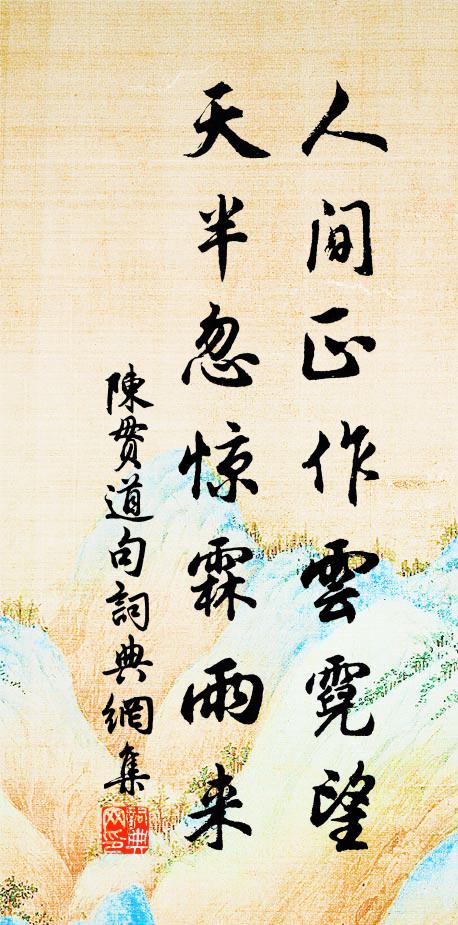 人間正作雲霓望
天半忽惊霖雨来
陳貫道句詞典網集
詞典